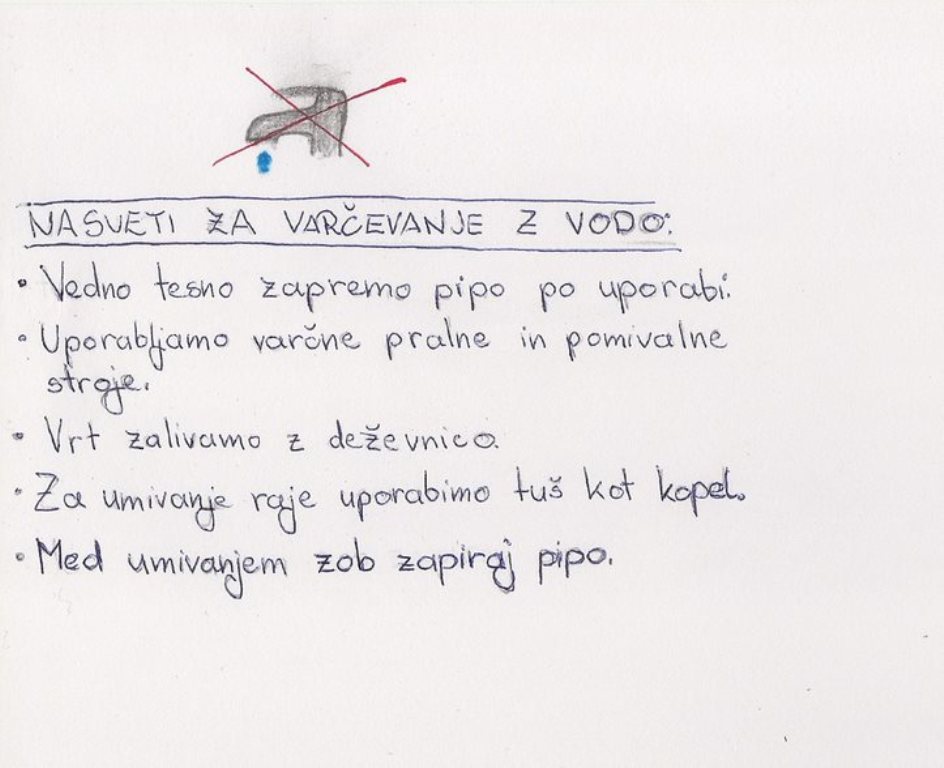 NASVETI ZA VARČEVANJE Z VODO:
• Vedno tesno zapremo pipo po uporabi.
• Uporabljamo varčne pralne in pomivalne
stroje.
• Vrt zalivamo z deževnico.
• Za umivanje raje uporabimo tuš kot kopel.
• Med umivanjem zob zapiraj pipo.